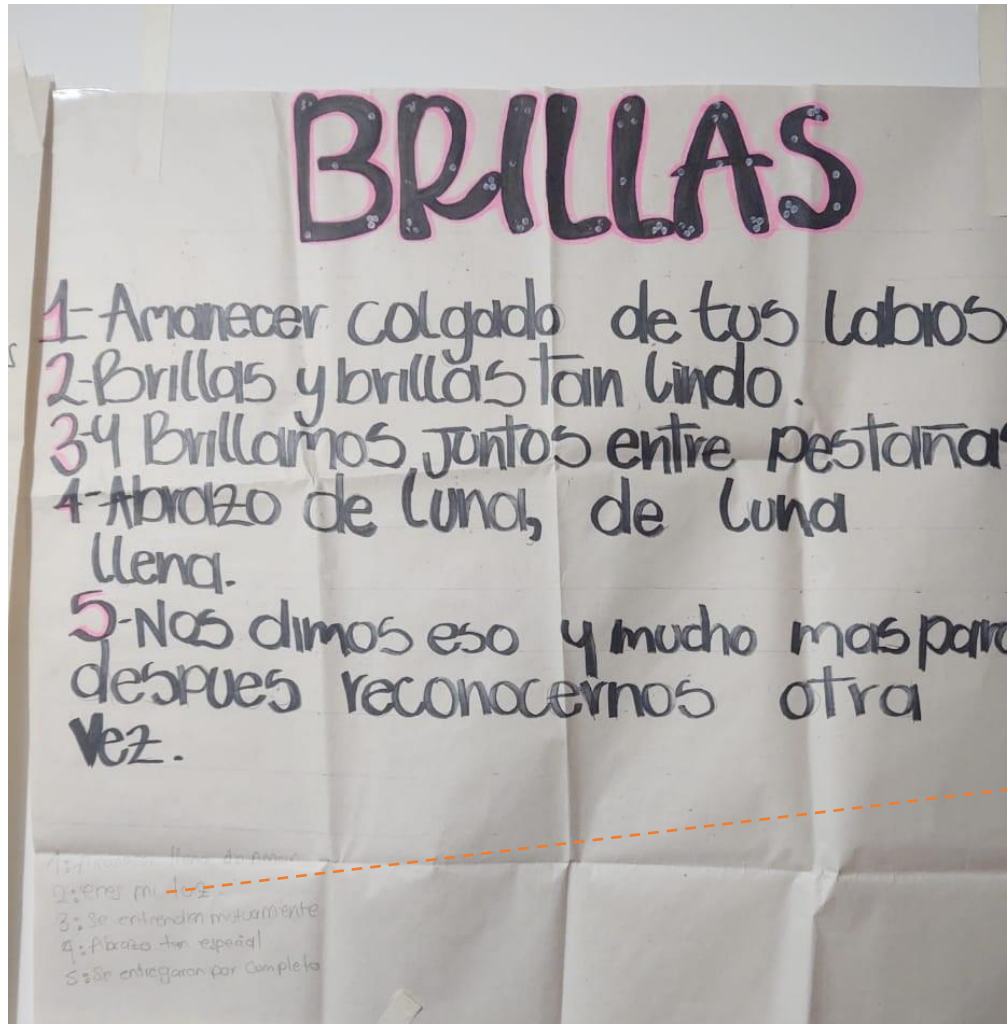 BRILLAS
1-Amanecer colgado de tus labios
2-Brillas y brillas tan lindo.
3-Y Brillamos juntos entre pestañas
4-Abrazo de luna, de luna
llena.
5-Nos dimos eso y mucho mas para
despues reconocernos otra
vez.
1:
2: eres mi luz
3: Se entienden mutuamente
4: Abrazo tan especial
5: Se entregaron por completo